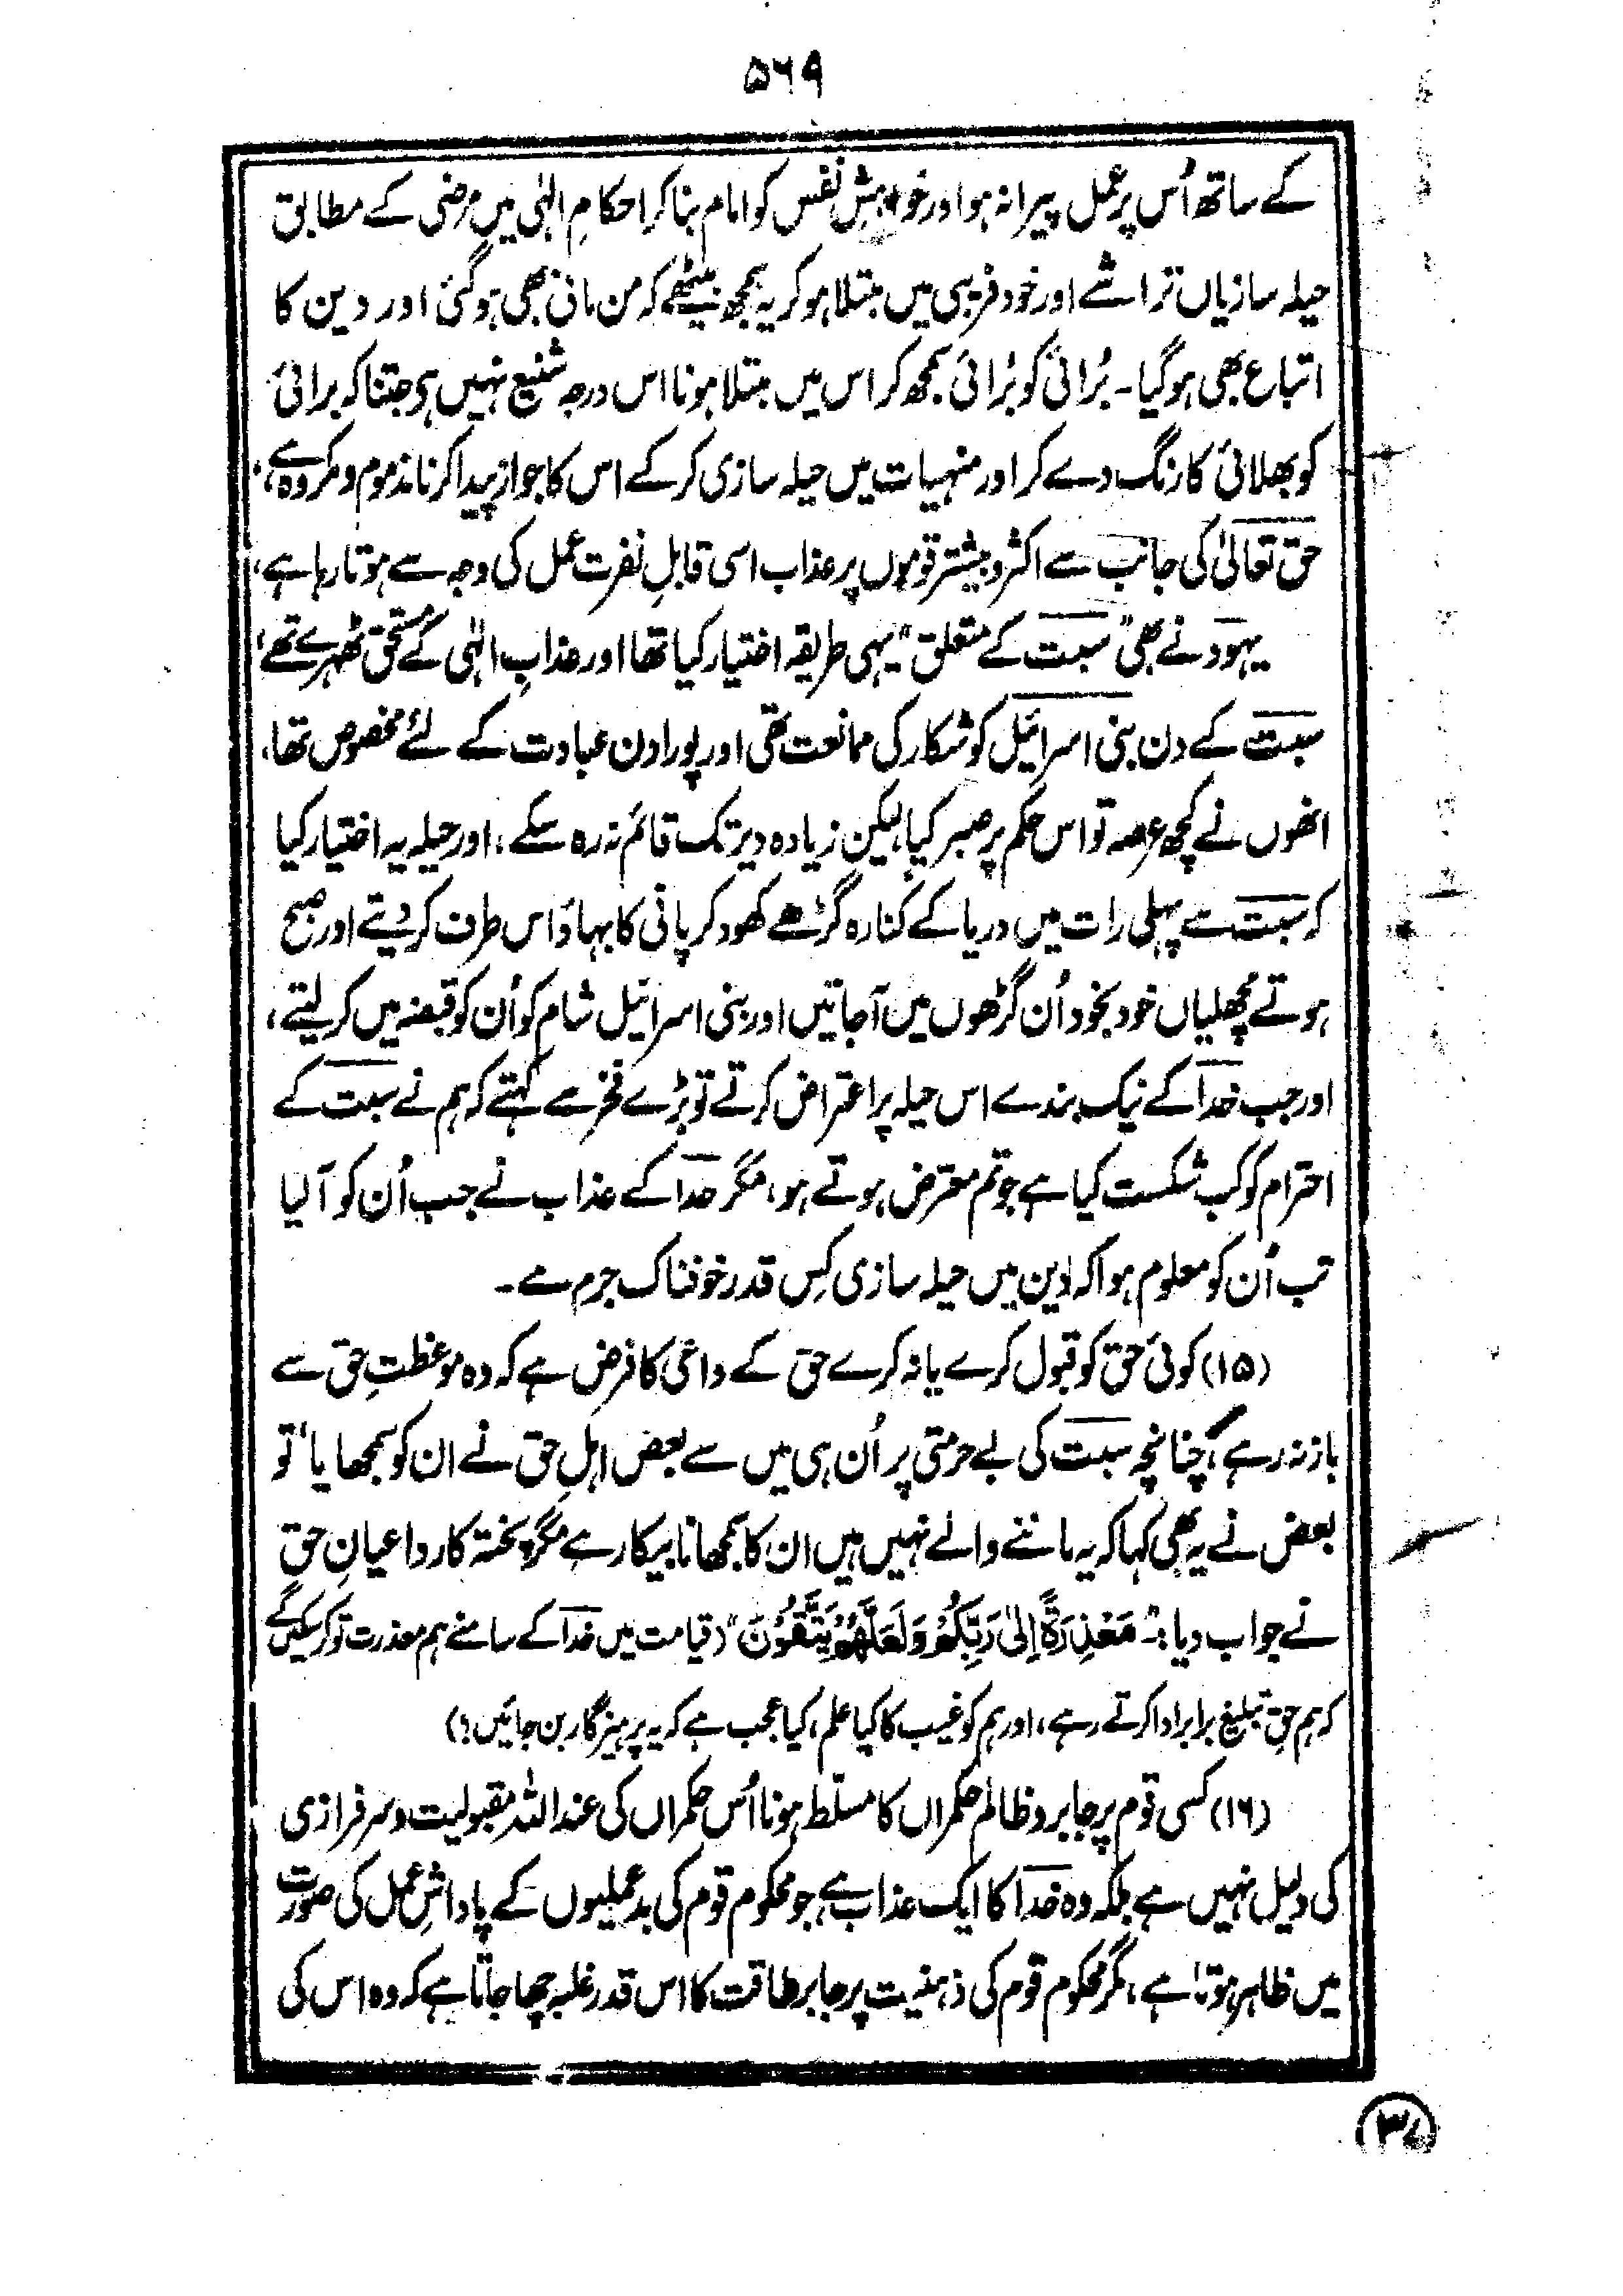 ۵۶۹
کے ساتھ اُس پر عمل پیرا نہ ہو اور خواہشِ نفس کو امام بنا کر احکامِ الٰہی میں مرضی کے مطابق
حیلہ سازیاں تراشے اور خود فریبی میں مبتلا ہو کر یہ سمجھ بیٹھے کہ من مانی بھی ہوگئی اور دین کا
اتباع بھی ہوگیا۔ بُرائی کو بُرائی سمجھ کر اس میں مبتلا ہونا اس درجہ شنیع نہیں ہی جتنا کہ برائی
کو بھلائی کا رنگ دے کر اور منہیات میں حیلہ سازی کر کے اس کا جواز پیدا کرنا مذموم و مکروہ ہے،
حق تعالیٰ کی جانب سے اکثر و بیشتر قوموں پر عذاب اسی قابلِ نفرت عمل کی وجہ سے ہوتا رہا ہے،
یہود نے بھی "سبت کے متعلق" یہی طریقہ اختیار کیا تھا اور عذابِ الٰہی کے مستحق ٹھہرے تھے،
سبت کے دن بنی اسرائیل کو شکار کی ممانعت تھی اور پورا دن عبادت کے لئے مخصوص تھا،
انھوں نے کچھ عرصہ تو اس حکم پر صبر کیا، لیکن زیادہ دیر تک قائم نہ رہ سکے، اور حیلہ یہ اختیار کیا
کہ سبت سے پہلی رات میں دریا کے کنارہ گڑھے کھود کر پانی کا بہاؤ اس طرف کر دیتے اور صبح
ہوتے مچھلیاں خود بخود اُن گڑھوں میں آجاتیں اور بنی اسرائیل شام کو اُن کو قبضہ میں کر لیتے،
اور جب خدا کے نیک بندے اس حیلہ پر اعتراض کرتے تو بڑے فخر سے کہتے کہ ہم نے سبت کے
احترام کو کب شکست کیا ہے جو تم معترض ہوتے ہو، مگر خدا کے عذاب نے جب اُن کو آلیا
تب اُن کو معلوم ہوا کہ دین میں حیلہ سازی کِس قدر خوفناک جرم ہے۔
(۱۵) کوئی حق کو قبول کرے یا نہ کرے حق کے داعی کا فرض ہے کہ وہ موعظتِ حق سے
باز نہ رہے، چنانچہ سبت کی بے حرمتی پر اُن ہی میں سے بعض اہلِ حق نے ان کو سمجھایا، تو
بعض نے یہ بھی کہا کہ یہ ماننے والے نہیں ہیں ان کا سمجھانا بیکار ہے مگر پختہ کار داعیانِ حق
نے جواب دیا:۔ "مَعْذِرَةً اِلىٰ رَبِّكُمْ وَلَعَلَّهُمْ يَتَّقُوْنَ" (قیامت میں خدا کے سامنے ہم معذرت تو کر سکیں گے
کہ ہم حق تبلیغ برابر ادا کرتے رہے، اور ہم کو غیب کا کیا علم، کیا عجب ہے کہ یہ پرہیزگار بن جائیں!)
(۱۶) کسی قوم پر جابر و ظالم حکمراں کا مسلّط ہونا اُس حکمراں کی عند اللہ مقبولیت و سرفرازی
کی دلیل نہیں ہے بلکہ وہ خدا کا ایک عذاب ہے جو محکوم قوم کی بدعملیوں کے پاداشِ عمل کی صورت
میں ظاہر ہوتا ہے، مگر محکوم قوم کی ذہنیت پر جابر طاقت کا اس قدر غلبہ چھا جاتا ہے کہ وہ اس کی
۳۷